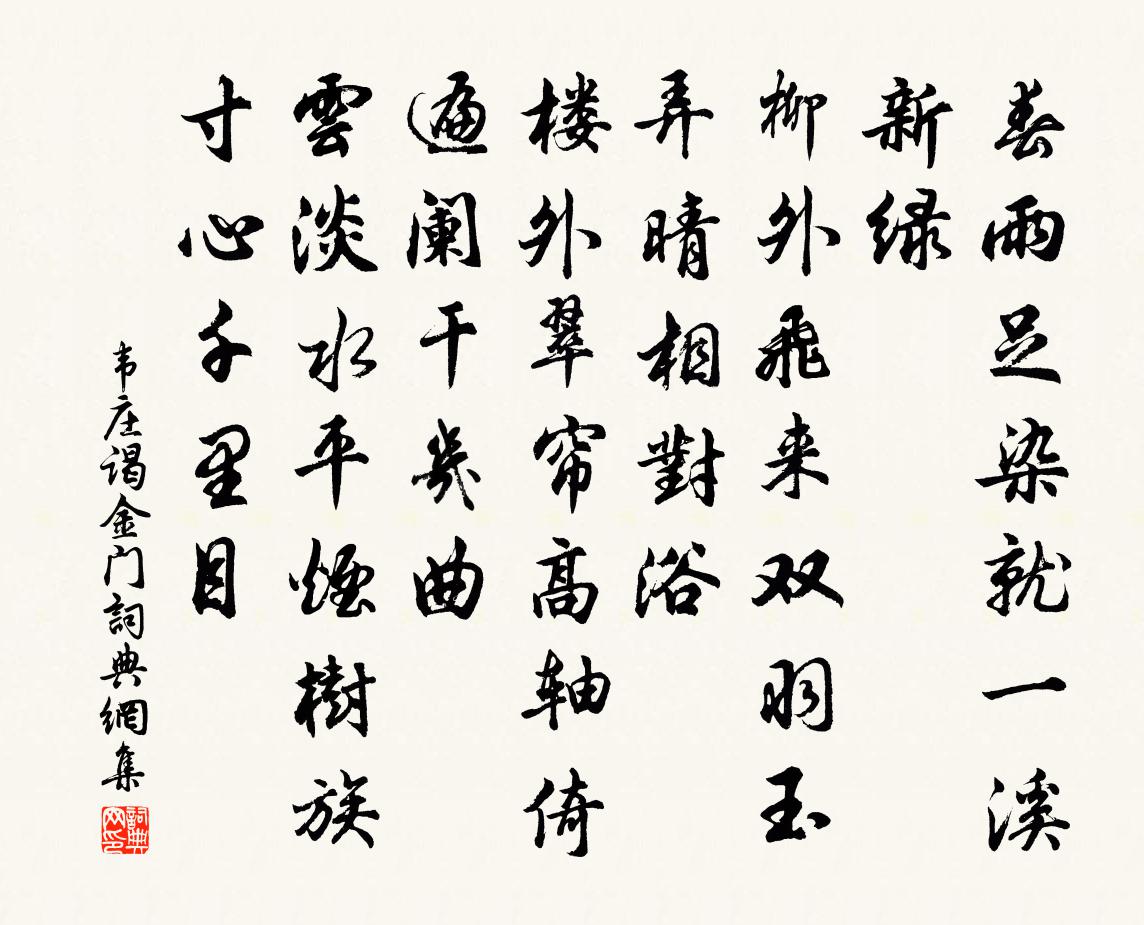 春雨足染就一溪
新绿
柳外飛来双羽玉
弄晴相對浴
楼外翠帘高轴倚
遍阑干幾曲
雲淡水平煙樹簇
寸心千里目
韦庄谒金门詞典網集
詞典网印